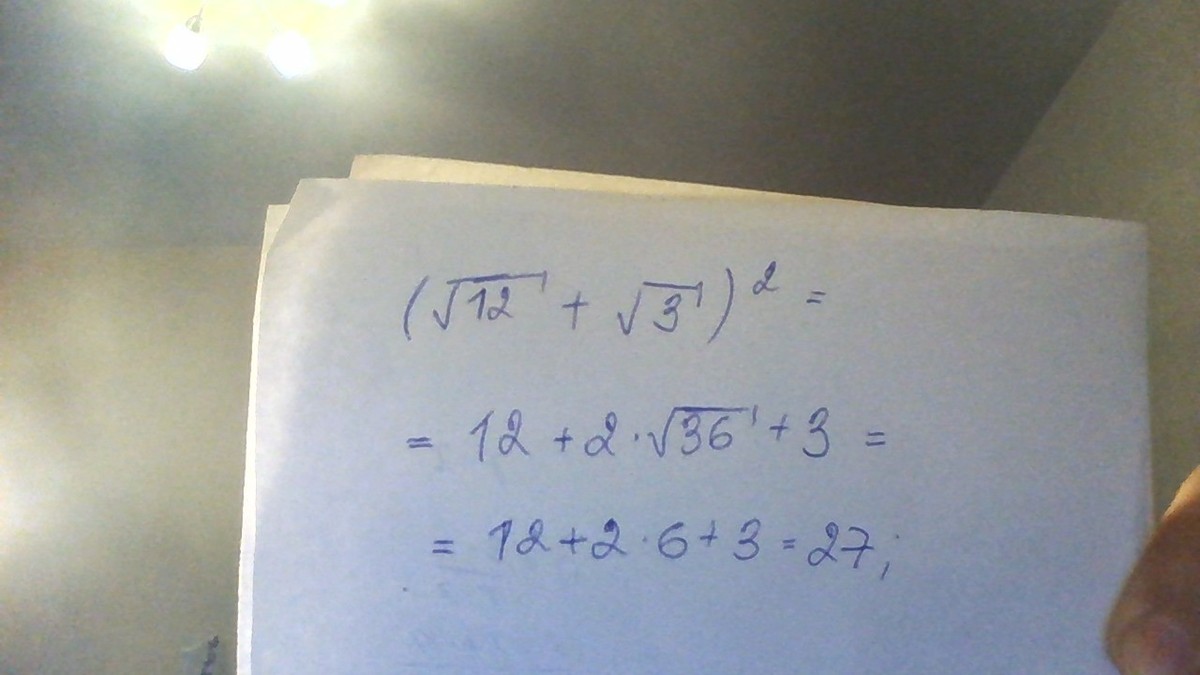 (√12 + √3)² =
= 12 + 2·√36 + 3 =
= 12 + 2·6 + 3 = 27;